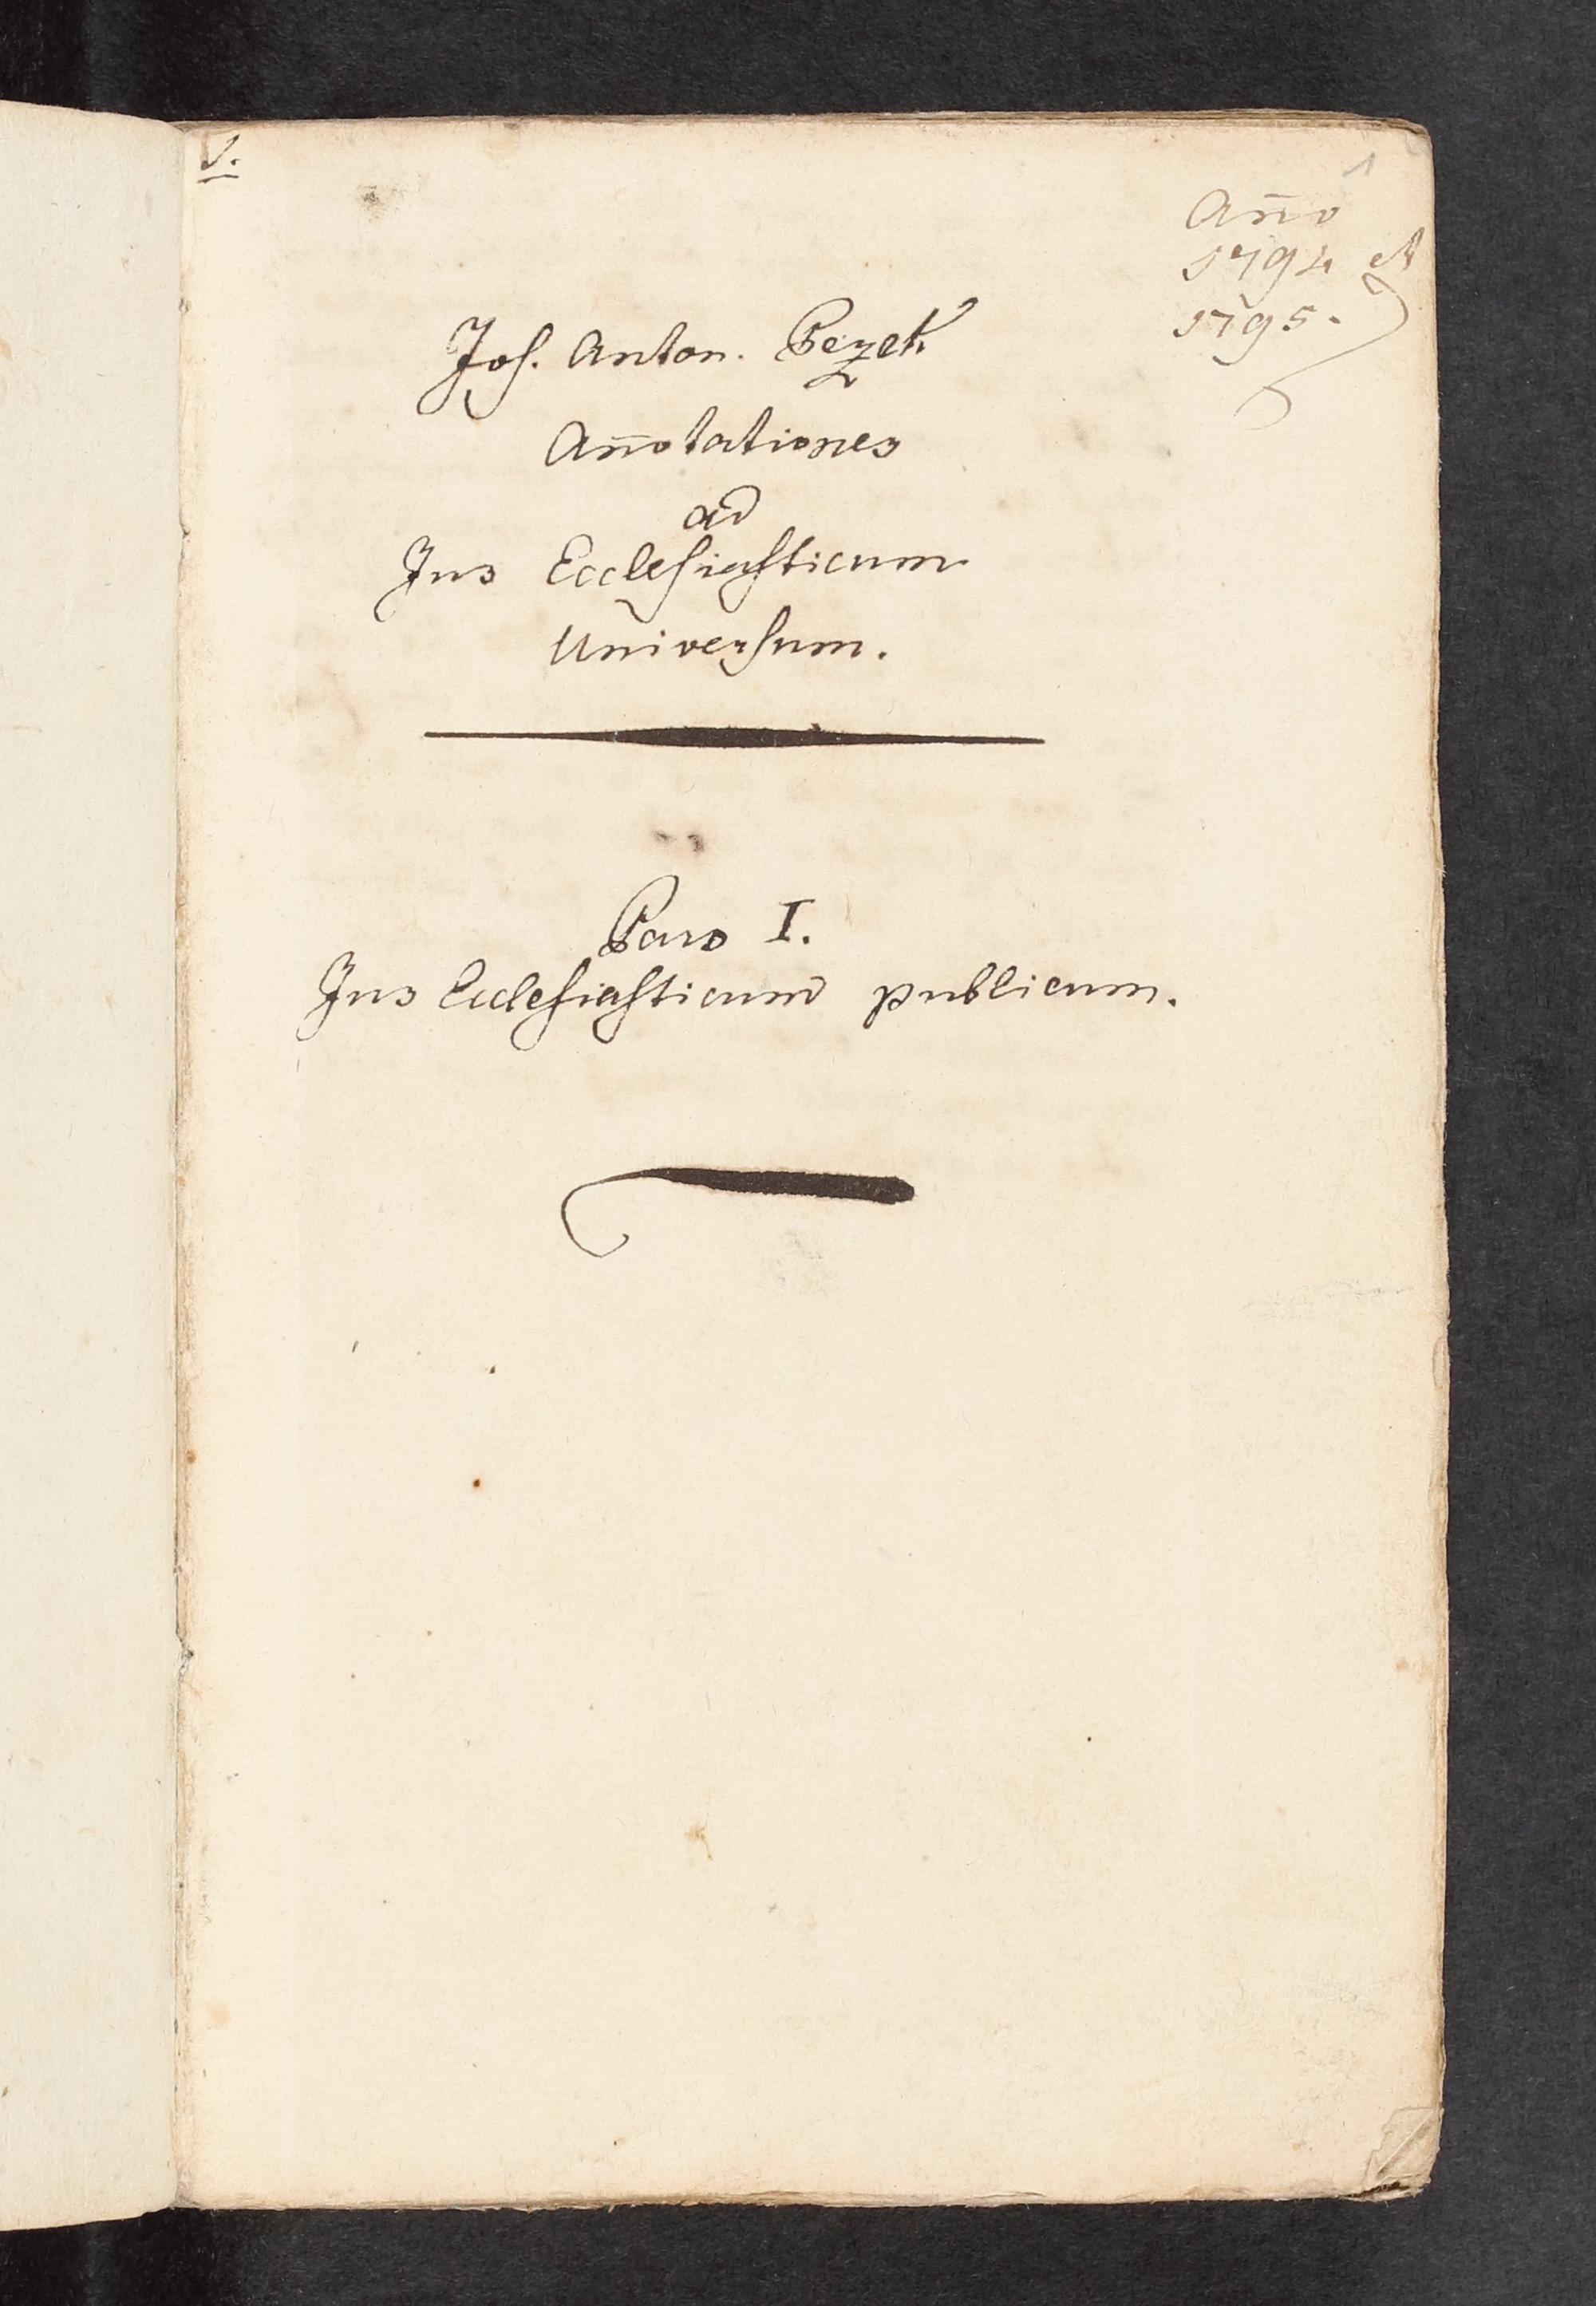 1.
1
Año
1794 et
1795.
Jos. Anton. Pezek
Añotationes
ad
Jus Ecclesiasticum
Universum.
Pars I.
Jus Ecclesiasticum publicum.